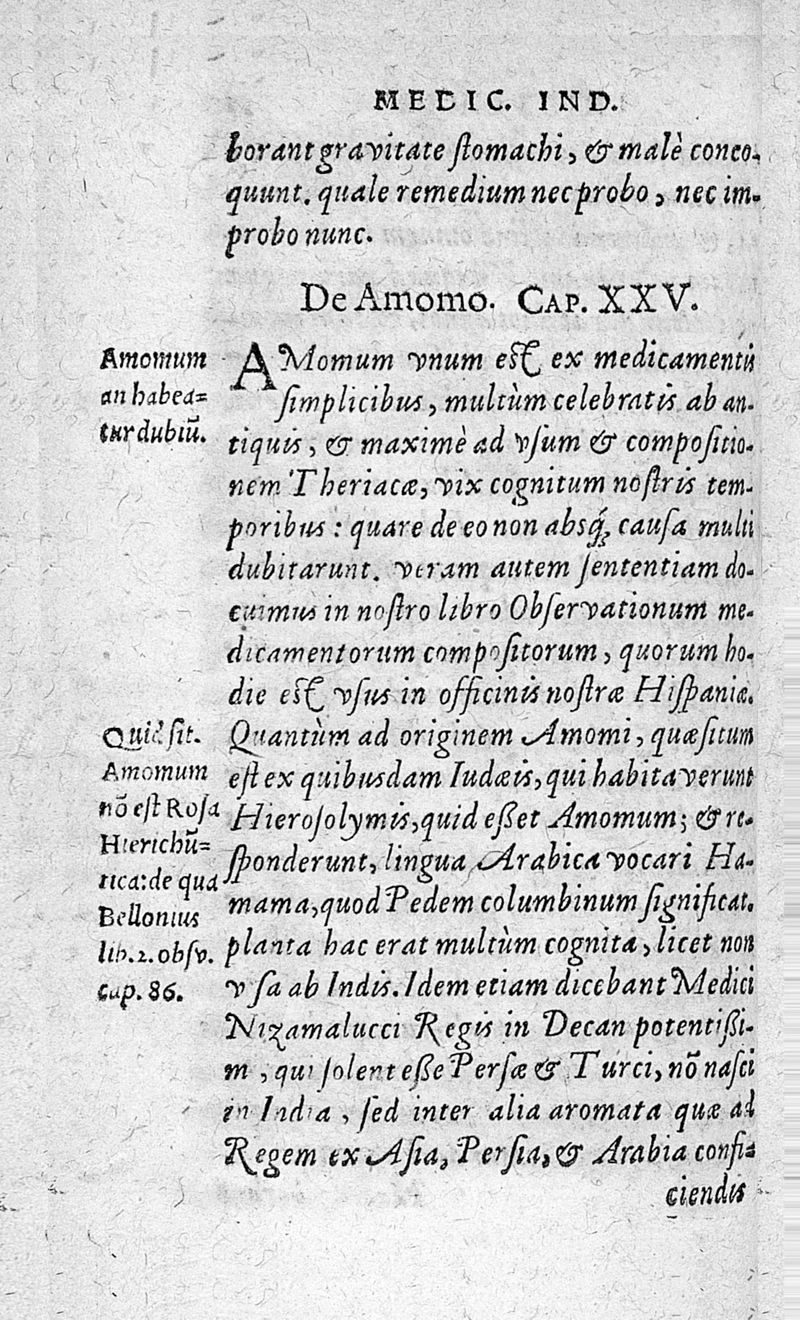 MEDIC. IND.
borant gravitate stomachi, & malè conco-
quunt. quale remedium nec probo, nec im-
probo nunc.
De Amomo. CAP. XXV.
Amomum
an habea=
tur dubiũ.
AMomum vnum est ex medicamentis
simplicibus, multùm celebratis ab an-
tiquis, & maximè ad vsum & compositio-
nem Theriacæ, vix cognitum nostris tem-
poribus: quare de eo non absq́; causa multi
dubitarunt. veram autem sententiam do-
cuimus in nostro libro Observationum me-
dicamentorum compositorum, quorum ho-
die est vsus in officinis nostræ Hispaniæ.
Quid sit.
Amomum
nõ est Rosa
Hierichũ=
tica: de qua
Bellonius
lib. 2. obsv.
cap. 86.
Quantùm ad originem Amomi, quæsitum
est ex quibusdam Iudæis, qui habitaverunt
Hierosolymis, quid eßet Amomum; & re-
sponderunt, lingua Arabica vocari Ha-
mama, quod Pedem columbinum significat.
planta hac erat multùm cognita, licet non
vsa ab Indis. Idem etiam dicebant Medici
Nizamalucci Regis in Decan potentißi-
m , qui solent eße Persæ & Turci, nõ nasci
in India , sed inter alia aromata quæ ad
Regem ex Asia, Persia, & Arabia confi-
ciendis